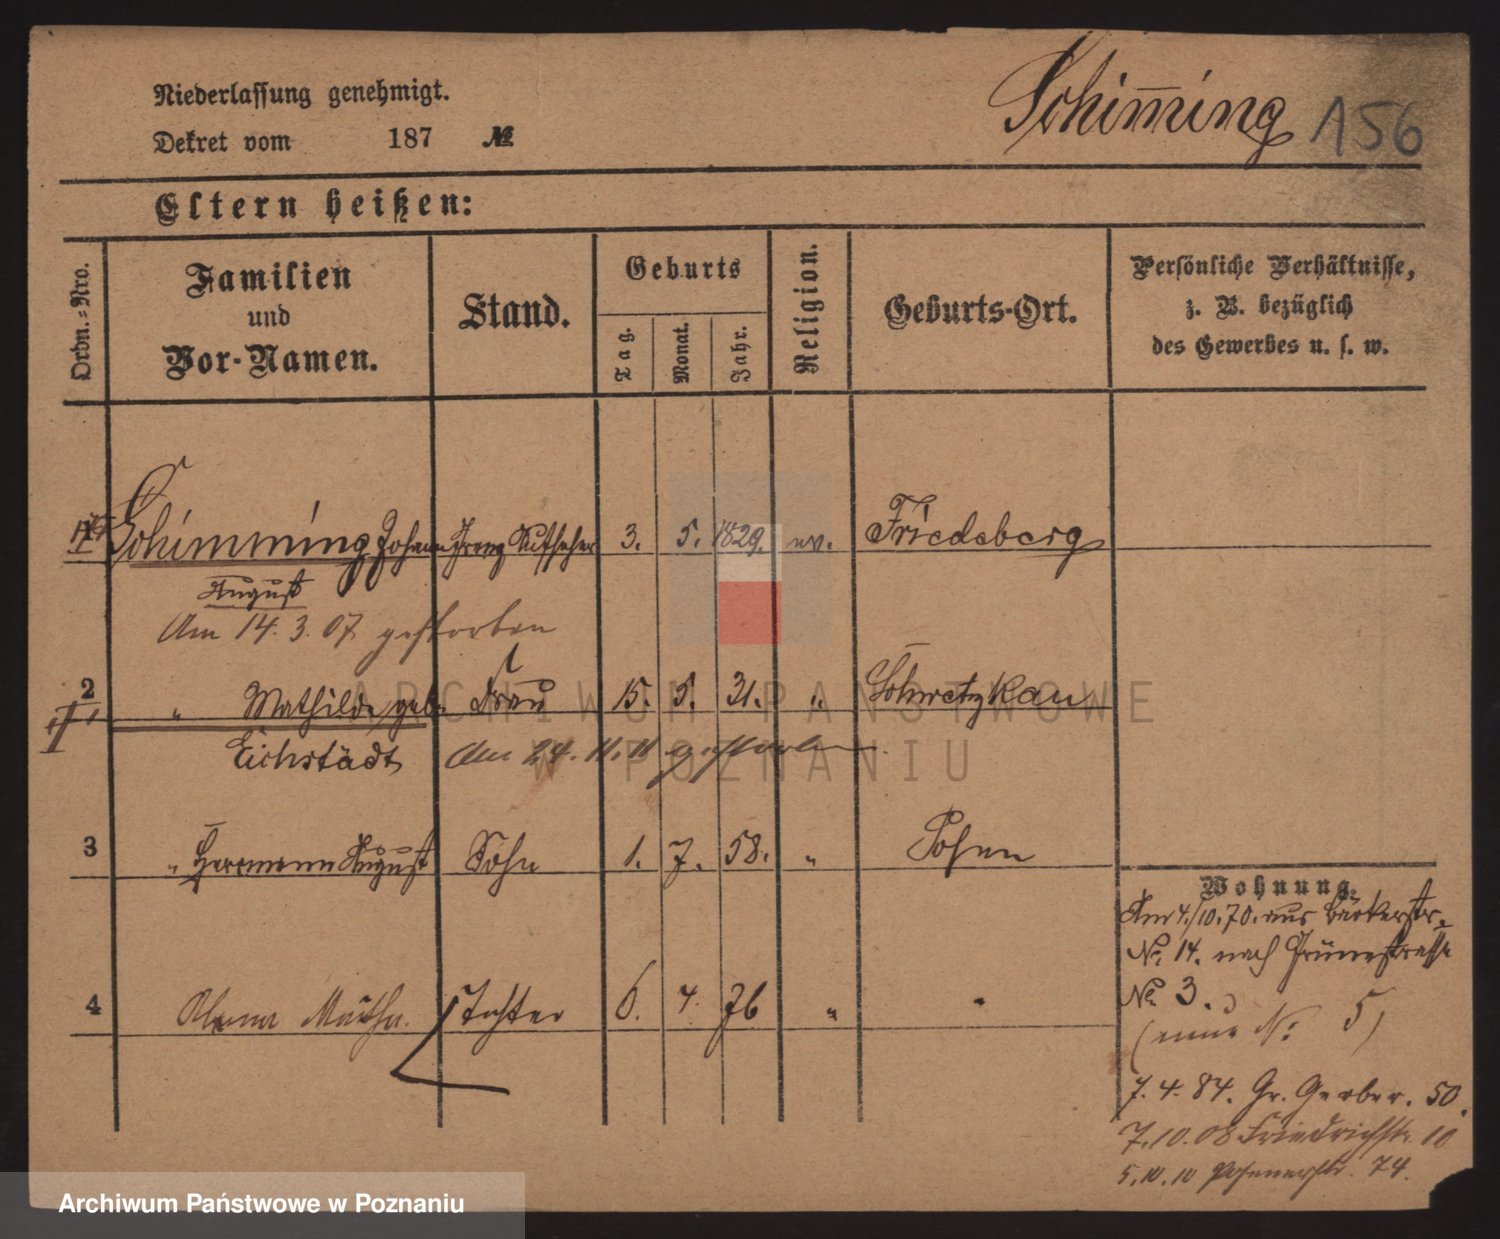 Niederlassung genehmigt.
Schim̅ing 156
Dekret vom 187 №
Eltern heißen:
Ordn.-Nro.
Familien
und
Vor-Namen.
Stand.
Geburts
Tag.
Monat.
Jahr.
Religion.
Geburts-Ort.
Persönliche Verhältnisse,
z. B. bezüglich
des Gewerbes u. s. w.
1 Schimming Johann Franz Aufseher 3. 5. 1829. ev. Friedeberg
August
Am 14. 3. 07 gestorben
2 " Mathilde geb. Frau 15. 5. 31. " Schwetzkau
Eichstädt Am 24. 11. 11 gestorben.
3 " Herrmann August Sohn 1. 7. 58. " Posen
Wohnung.
Am 4./10.70. aus Bäckerstr.
No. 14. nach Grünestrasse
4 Martha Tochter 6. 4. 76 " "
No 3.
(neue No: 5)
7. 4. 84. Gr. Gerber. 50.
7.10.08 Friedrichstr. 10
5.10.10 Posenerstr. 74.
ARCHIWUM PAŃSTWOWE
W POZNANIU
Archiwum Państwowe w Poznaniu